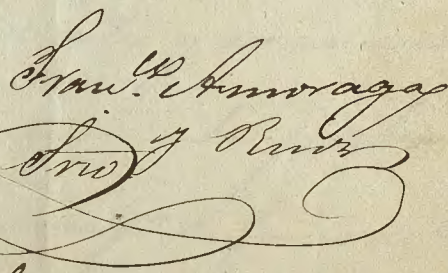 Franco Amoraga
Srio y Ruiz